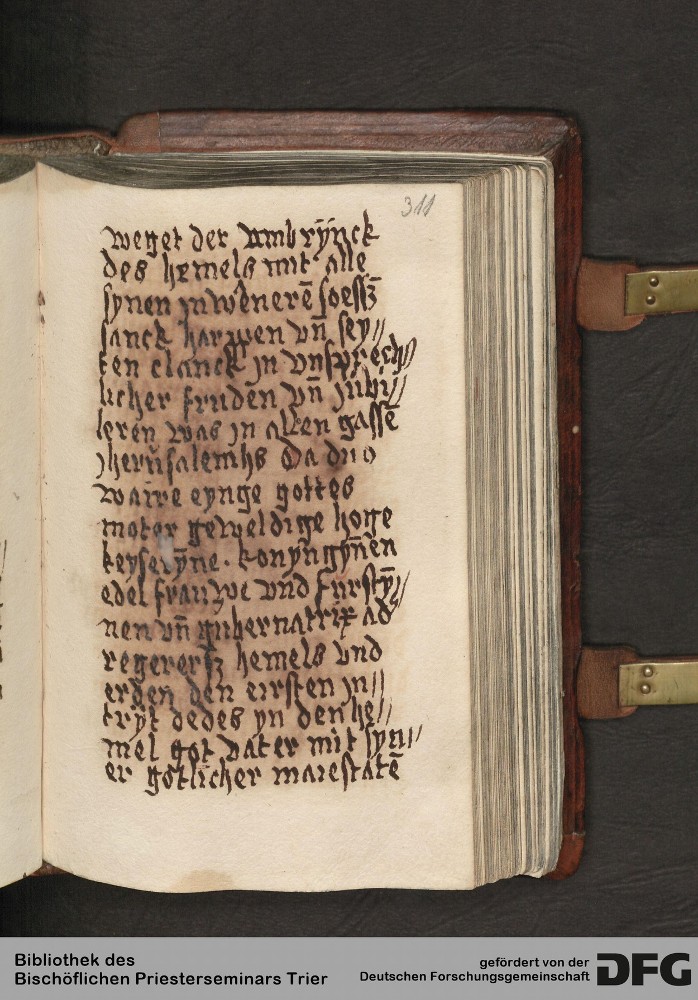 311
weget der vmbrÿnck
des hemels mit alle
synen inwenerē soessz
sanck harpen vn̄ sey//
ten clanck jn vnsprech//
licher fruden vn̄ jubi//
leren was jn allen gassē
jherusalemhs Da du o
waire eynge gottes
moter geweldige hoge
keyserȳne . konyngȳnen
edel frauwe vnd furstȳ//
nen vn̄ gubernatrix ad
regerersz hemels vnd
erden den eirsten jn//
tryt dedes yn den he//
mel got vater mit syn//
er gotlicher maiestatē
Bibliothek des
Bischöflichen Priesterseminars Trier
gefördert von der
Deutschen Forschungsgemeinschaft DFG